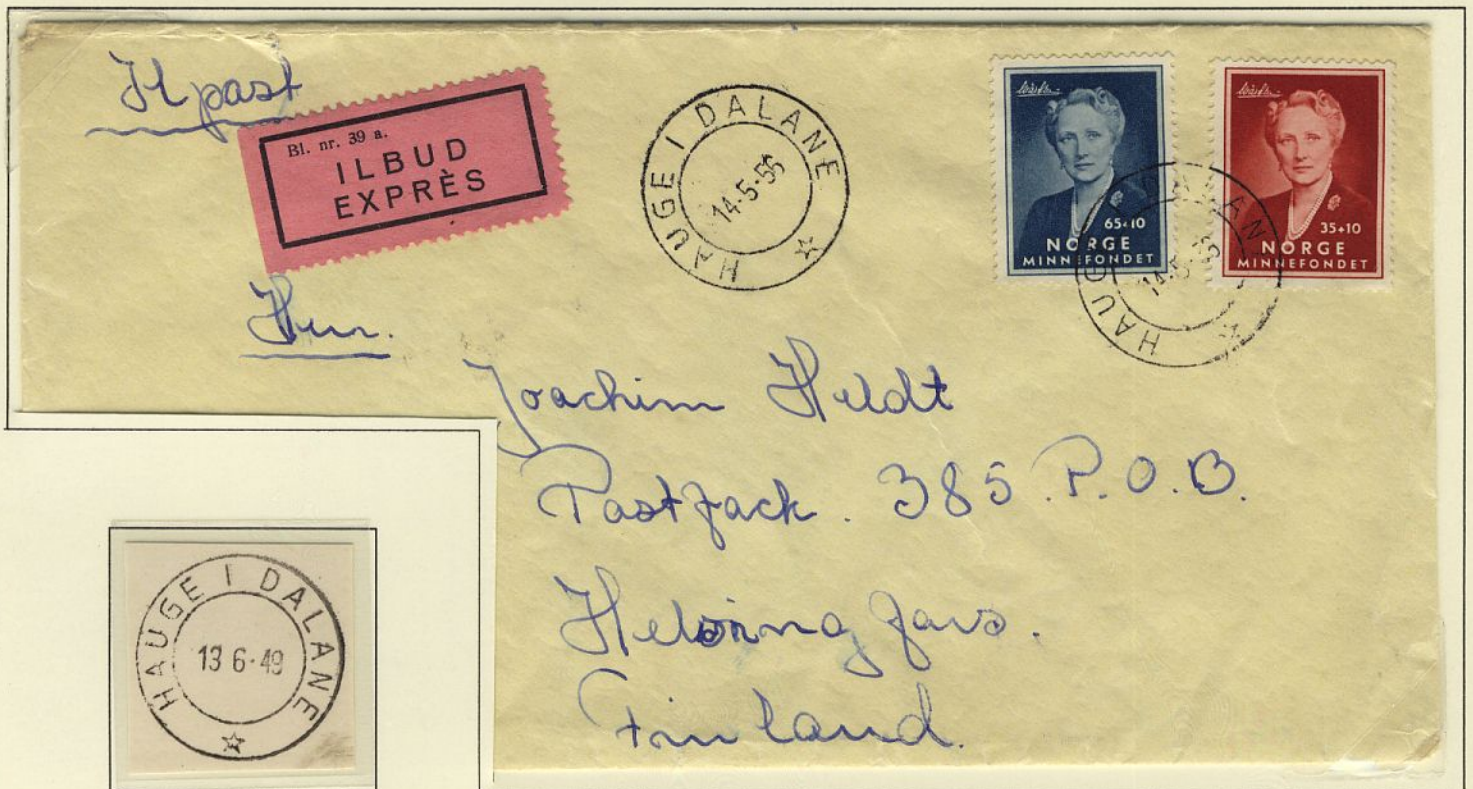 Ilpost
Bl. nr. 39 a.
ILBUD
EXPRÈS
HAUGE I DALANE
14-5-56
65+10
NORGE
MINNEFONDET
35+10
NORGE
MINNEFONDET
HAUGE I DALANE
14-5-56
Herr.
Joachim Heldt
Postfack. 385. P.O.B.
Helsingfors.
Finland.
HAUGE I DALANE
13 6-49